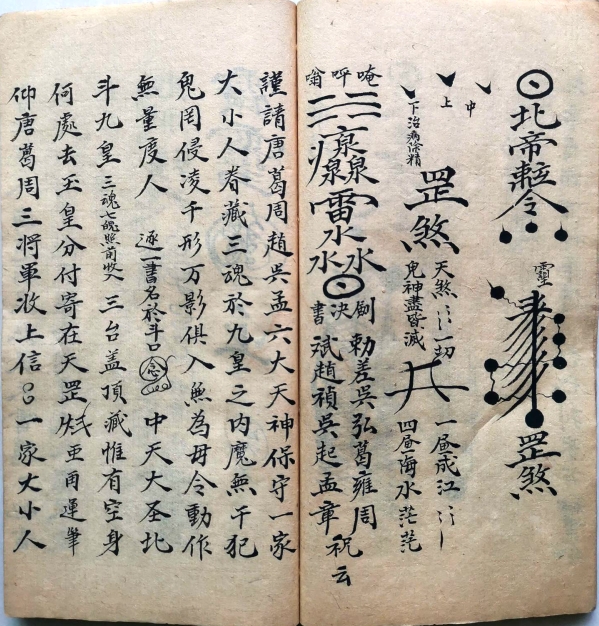 北帝敕令
靈
罡煞
中
上
下治病除精
罡煞
天煞 一切
鬼神盡昏滅
一昼成江
四昼海水茫茫
唵呼嗡
雷
水水水
劍決書
勅差吳弘葛雍周
斌趙禎吳起孟章祝云
謹請唐葛周趙吳孟六大天神保守一家
大小人眷藏三魂於九皇之內魔無干犯
鬼罔侵凌千形万影俱入無為毋令動作
無量度人 逐一書名於斗口 念 中天大圣北
斗九皇 三魂七魄照前收入 三台盖頂藏惟有空身
何處去玉皇分付寄在天罡 再運筆
仰唐葛周三將軍收上信 一家大小人